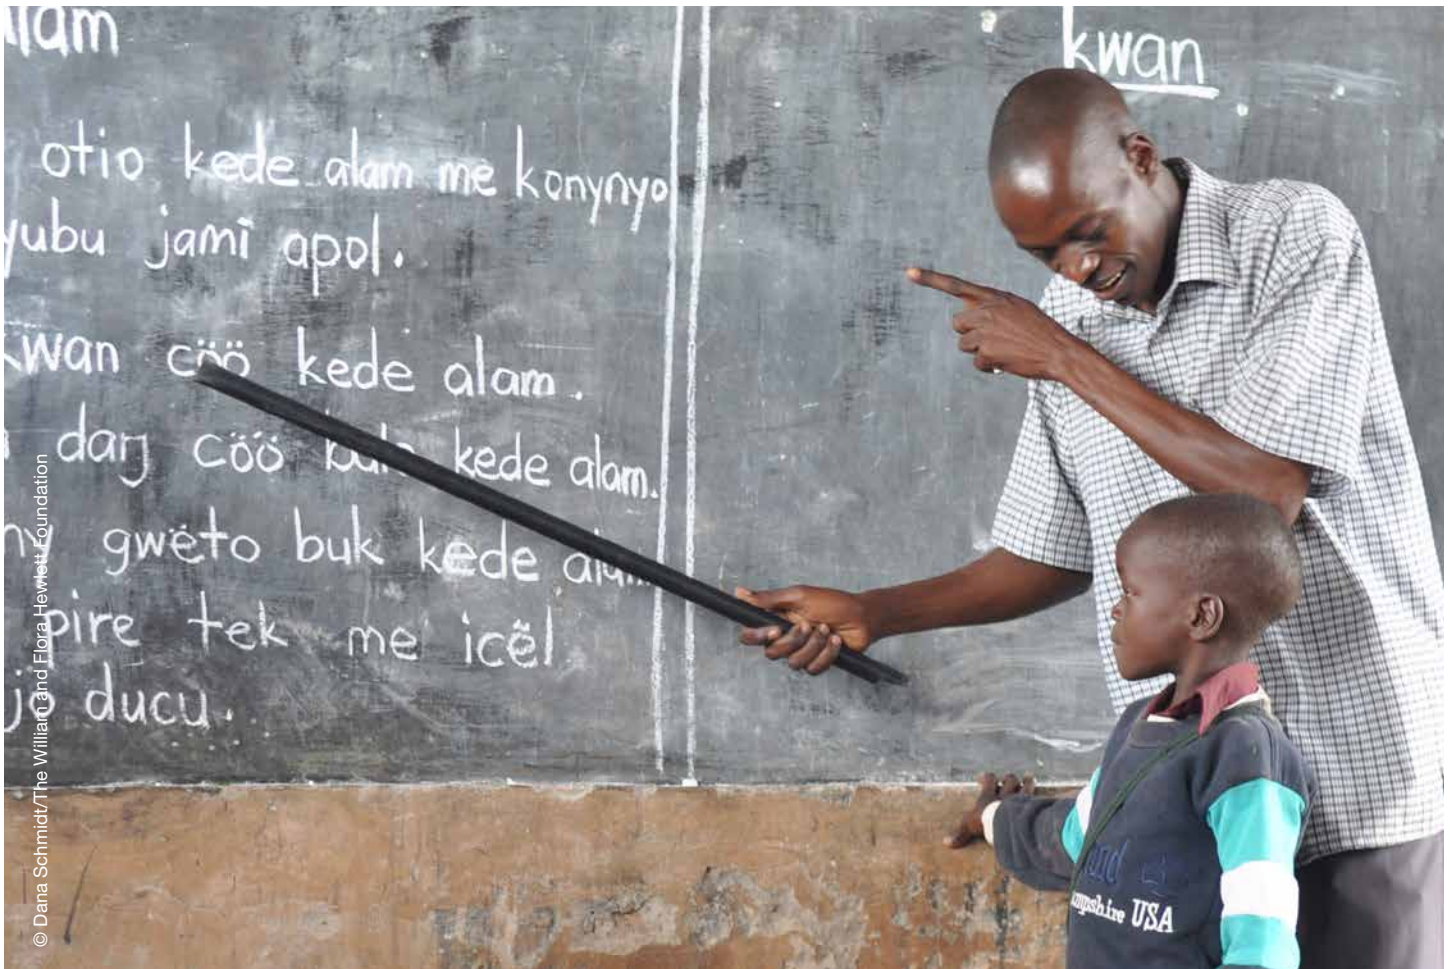 alam
otio kede alam me konynyo
yubu jami apol.
kwan cöö kede alam.
daŋ cöö kede alam.
gwëto buk kede alam
pire tek me icël
jö ducu.
kwan
© Dana Schmidt/The William and Flora Hewlett Foundation
USA